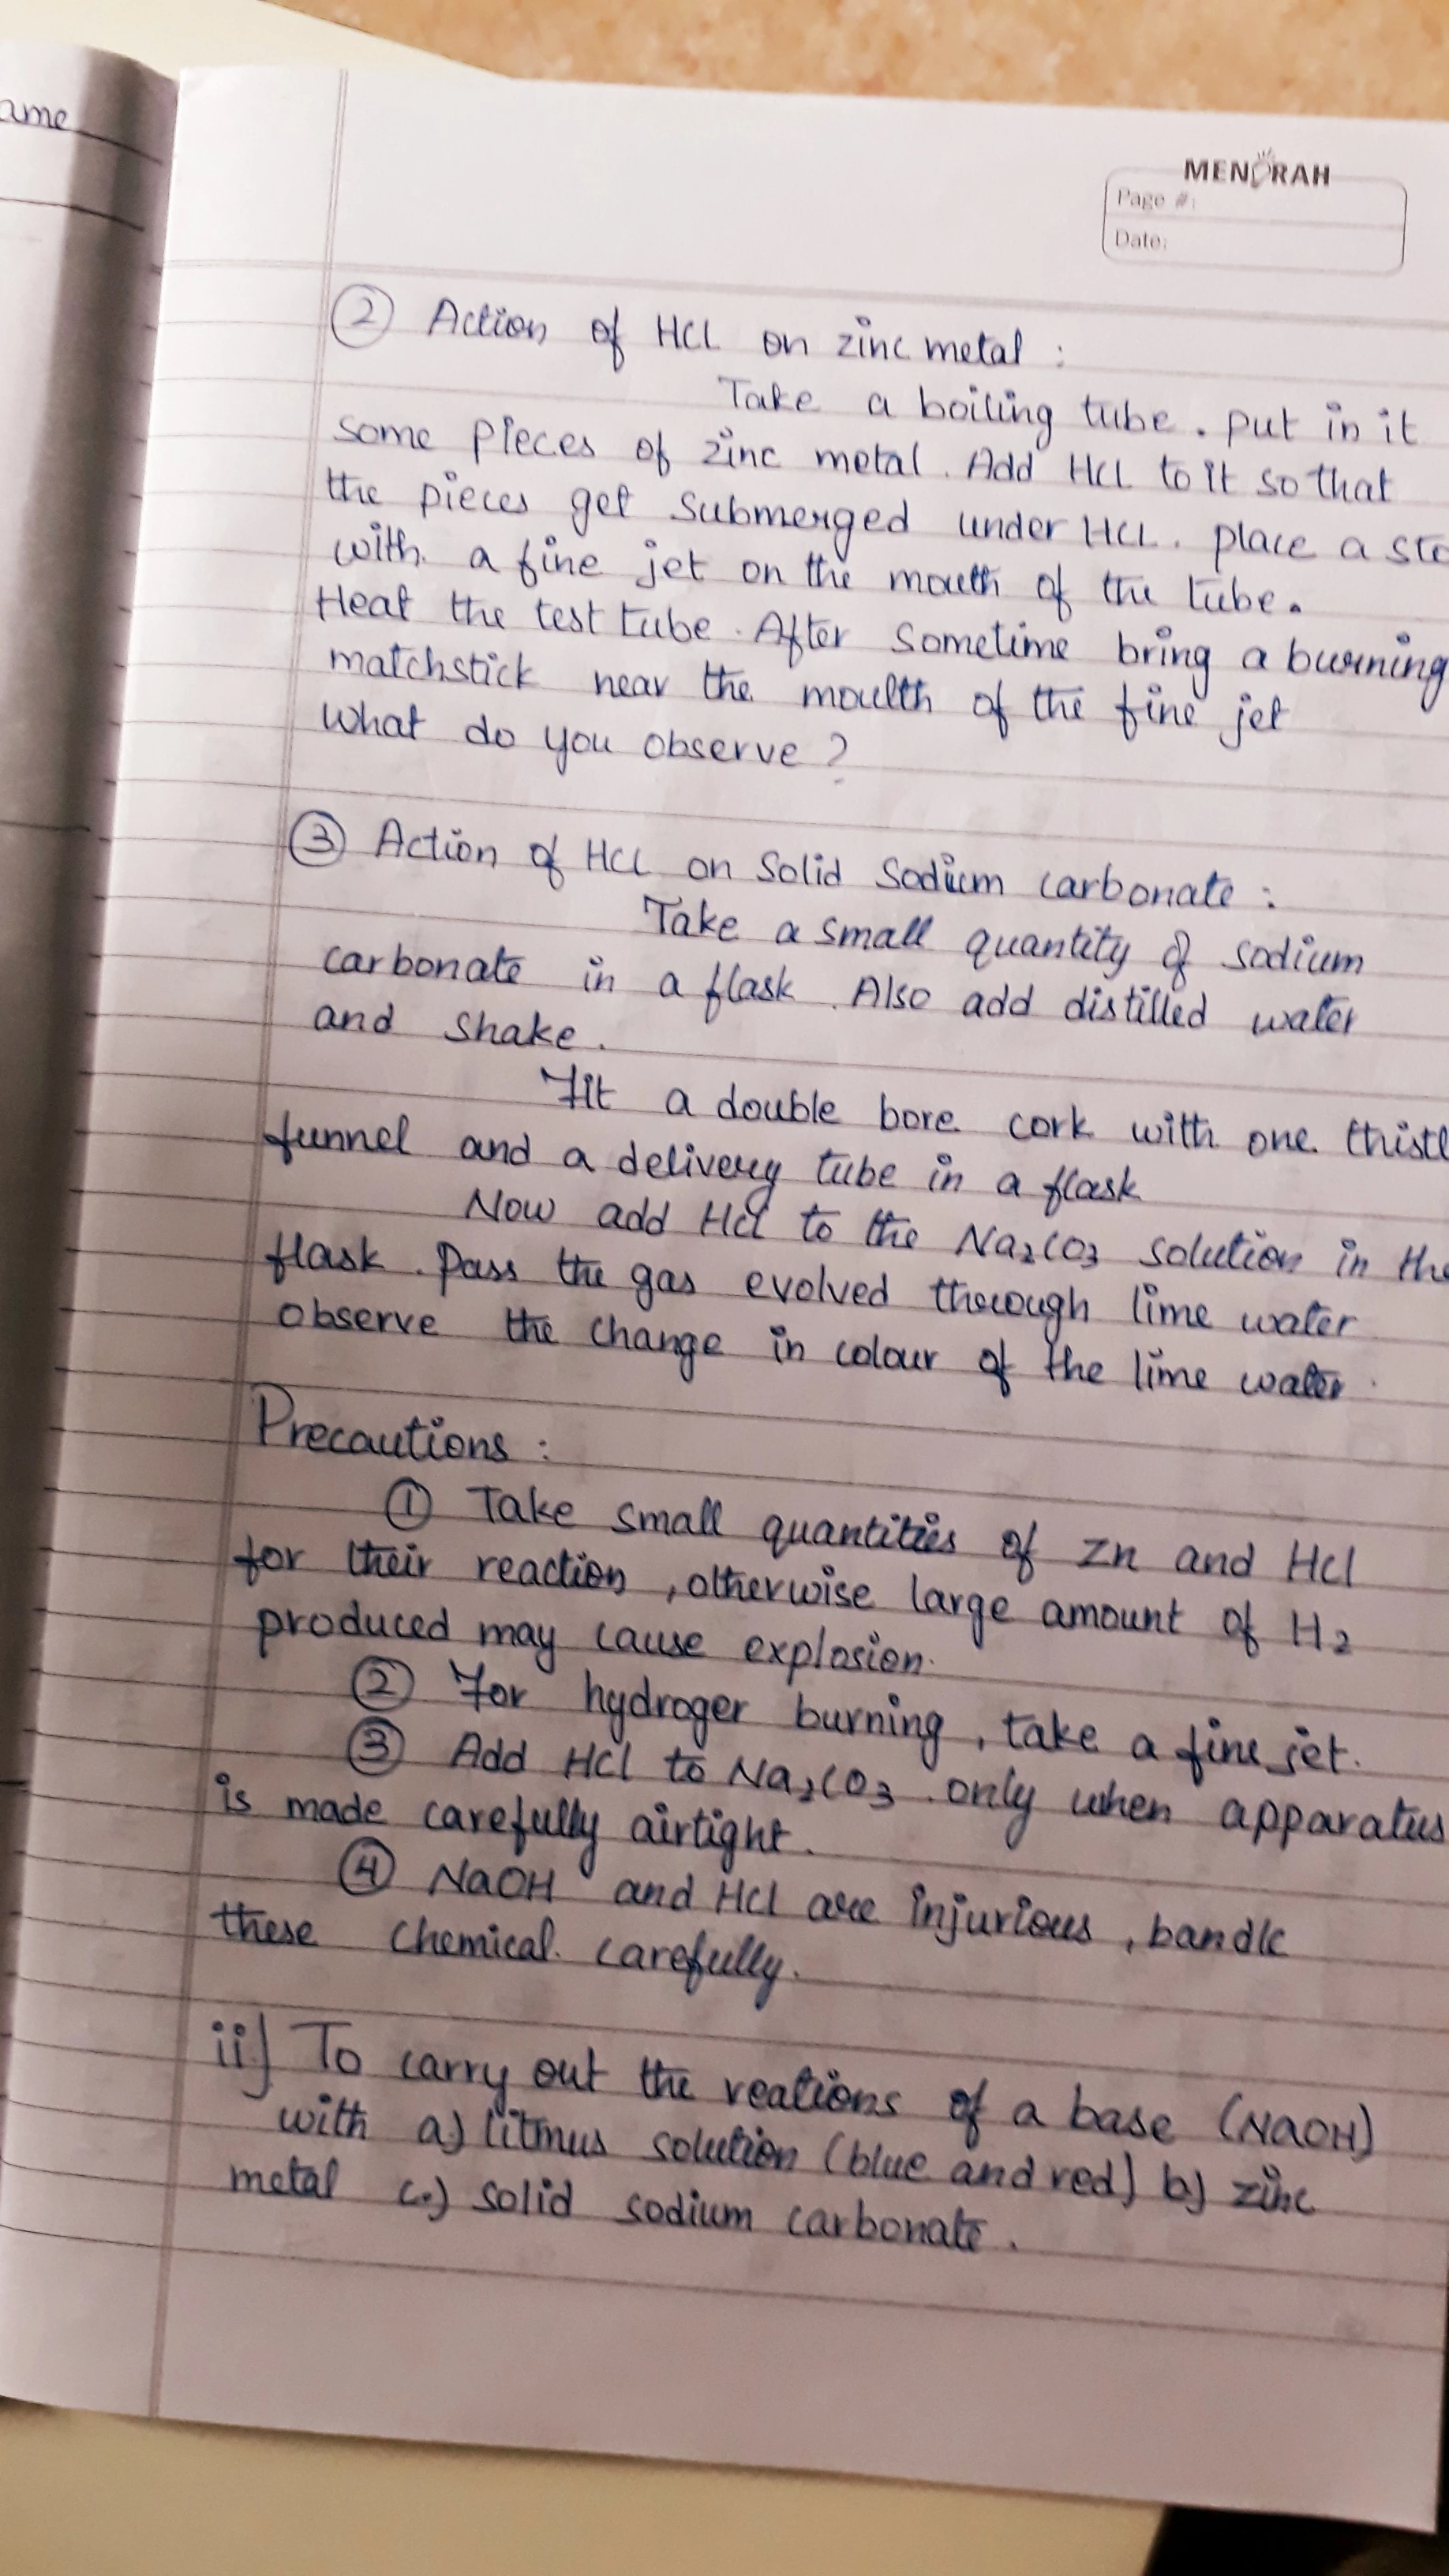 ame
MENORAH
Page #:
Date:
② Action of HCl on zinc metal :
Take a boiling tube . put in it
some pieces of zinc metal . Add HCl to it so that
the pieces get submerged under HCl . place a sto
with a fine jet on the mouth of the tube .
Heat the test tube . After sometime bring a burning
matchstick near the moulth of the fine jet
what do you observe ?
③ Action of HCl on solid sodium carbonate :
Take a small quantity of sodium
carbonate in a flask . Also add distilled water
and shake .
Fit a double bore cork with one thistl
funnel and a delivery tube in a flask
Now add HCl to the Na₂CO₃ solution in the
flask . Pass the gas evolved through lime water
observe the change in colour of the lime water .
Precautions :
① Take small quantities of Zn and HCl
for their reaction , otherwise large amount of H₂
produced may cause explosion .
② For hydroger burning , take a fine jet .
③ Add HCl to Na₂CO₃ . only when apparatus
is made carefully airtight .
④ NaOH and HCl are injurious , bandle
these chemical . carefully .
ii] To carry out the reations of a base (NaOH)
with a) litmus solution (blue and red) b) zinc
metal c.) solid sodium carbonate .